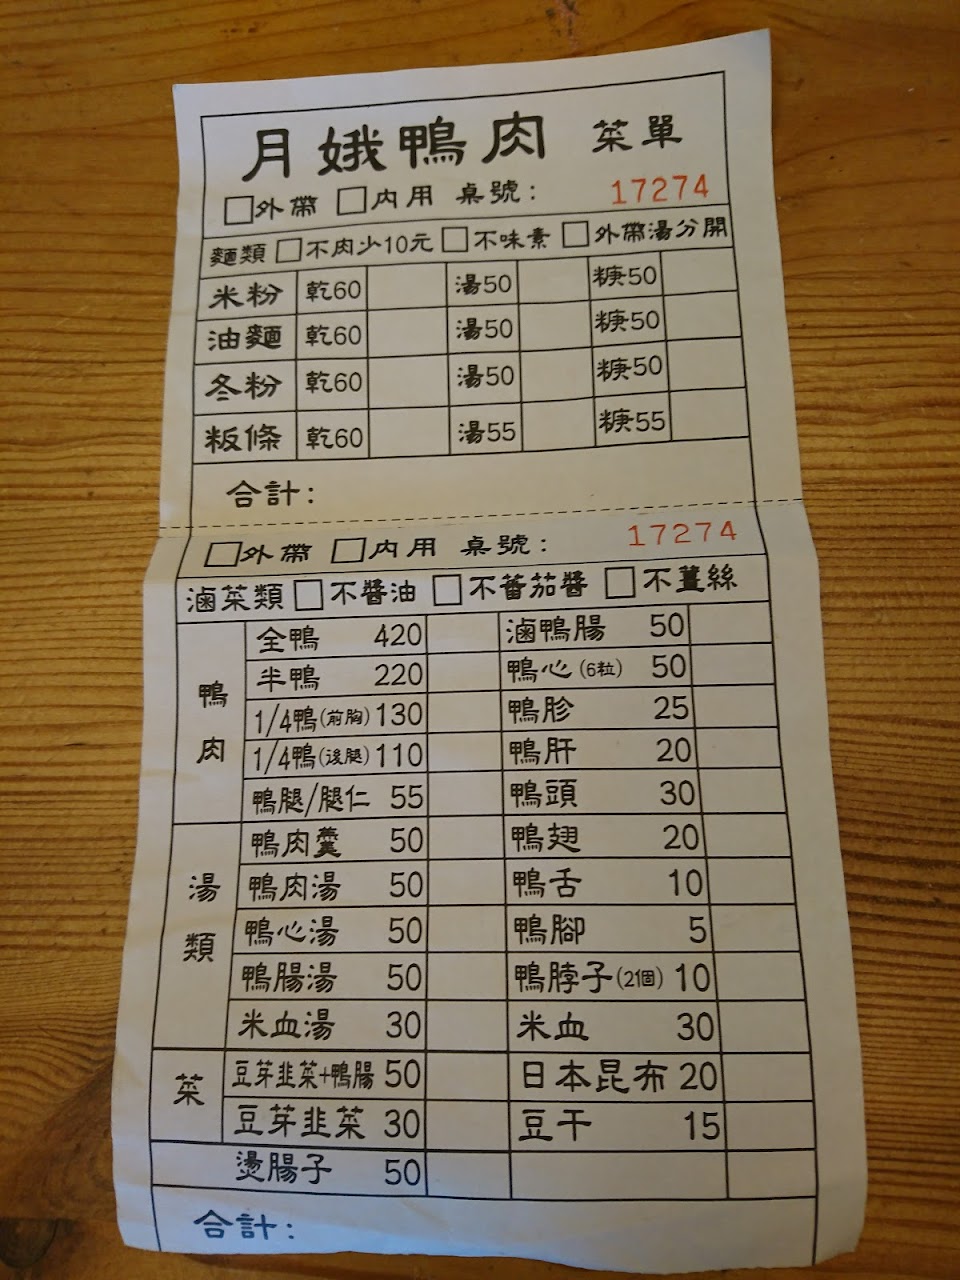 月娥鴨肉 菜單
□外帶 □內用 桌號: 17274
麵類 □不肉少10元 □不味素 □外帶湯分開
米粉 乾60 湯50 糖50
油麵 乾60 湯50 糖50
冬粉 乾60 湯50 糖50
粄條 乾60 湯55 糖55
合計:
□外帶 □內用 桌號: 17274
滷菜類 □不醬油 □不蕃茄醬 □不薑絲
鴨肉
全鴨 420 滷鴨腸 50
半鴨 220 鴨心(6粒) 50
1/4鴨(前胸) 130 鴨胗 25
1/4鴨(後腿) 110 鴨肝 20
鴨腿/腿仁 55 鴨頭 30
湯類
鴨肉羹 50 鴨翅 20
鴨肉湯 50 鴨舌 10
鴨心湯 50 鴨腳 5
鴨腸湯 50 鴨脖子(2個) 10
米血湯 30 米血 30
菜
豆芽韭菜+鴨腸 50 日本昆布 20
豆芽韭菜 30 豆干 15
燙腸子 50
合計: